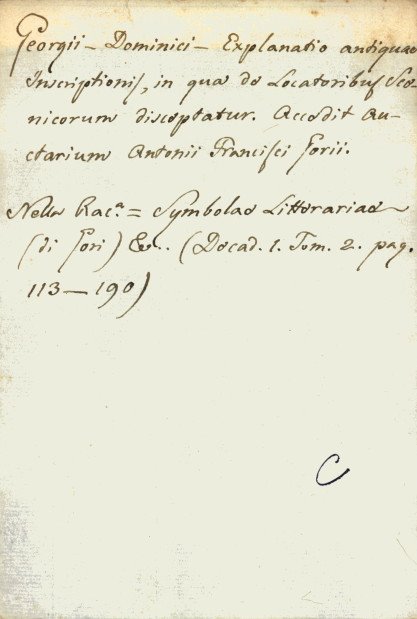 Georgii – Dominici – Explanatio antiquae
Inscriptionis, in qua de Locatoribus Sce-
nicorum disceptatur. Accedit Au-
ctarium Antonii Francisci Gorii.
Nella Rac.a = Symbolae Litterariae
(di Gori) &.. (Decad. 1. Tom. 2. pag.
113–190)
C